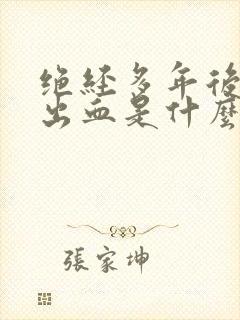 绝经多年後
出血是什麼
張家坤